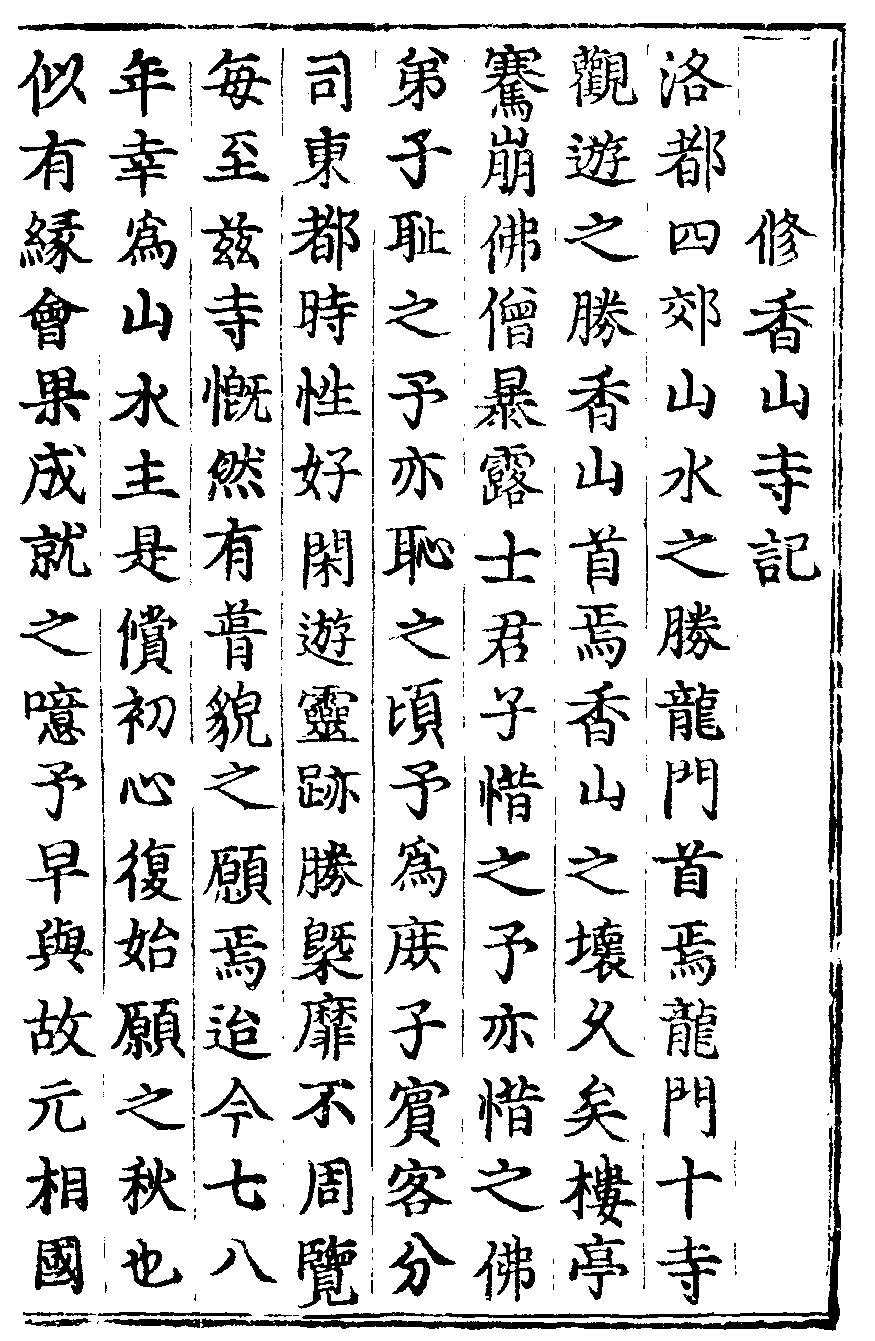 修香山寺記
洛都四郊山水之勝龍門首焉龍門十寺
觀遊之勝香山首焉香山之壞久矣樓亭
騫崩佛僧暴露士君子惜之予亦惜之佛
弟子耻之予亦恥之頃予爲庻子賓客分
司東都時性好閑遊靈跡勝槩靡不周覽
每至兹寺慨然有葺貌之願焉迨今七八
年幸爲山水主是償初心復始願之秋也
似有緣會果成就之噫予早與故元相國